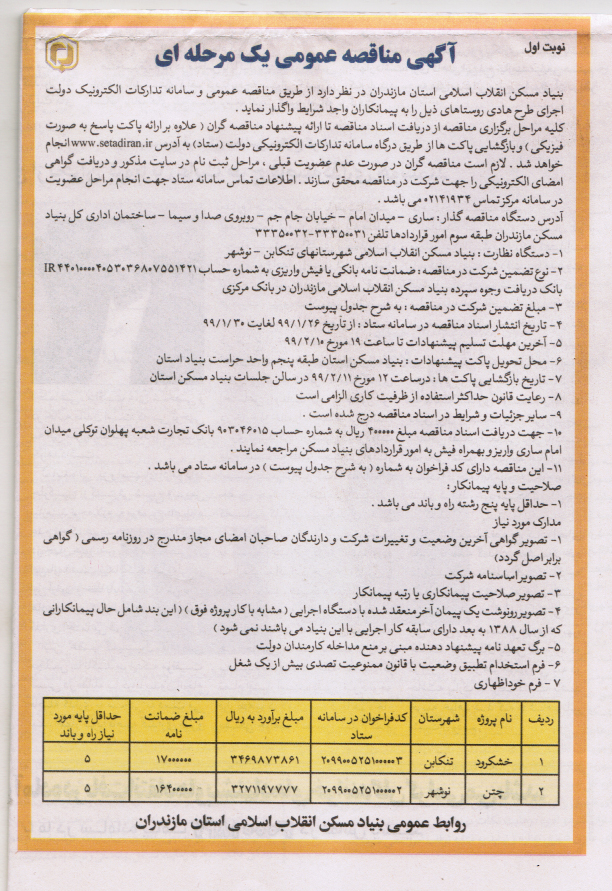 نوبت اول
آگهی مناقصه عمومی یک مرحله ای
بنیاد مسکن انقلاب اسلامی استان مازندران در نظر دارد از طریق مناقصه عمومی و سامانه تدارکات الکترونیک دولت
اجرای طرح هادی روستاهای ذیل را به پیمانکاران واجد شرایط واگذار نماید .
کلیه مراحل برگزاری مناقصه از دریافت اسناد مناقصه تا ارائه پیشنهاد مناقصه گران ( علاوه بر ارائه پاکت پاسخ به صورت
فیزیکی ) و بازگشایی پاکت ها از طریق درگاه سامانه تدارکات الکترونیکی دولت (ستاد) به آدرس www.setadiran.ir انجام
خواهد شد . لازم است مناقصه گران در صورت عدم عضویت قبلی ، مراحل ثبت نام در سایت مذکور و دریافت گواهی
امضای الکترونیکی را جهت شرکت در مناقصه محقق سازند . اطلاعات تماس سامانه ستاد جهت انجام مراحل عضویت
در سامانه و مرکز تماس ۰۲۱۴۱۹۳۴ می باشد .
آدرس دستگاه مناقصه گذار : ساری – میدان امام – خیابان جام جم – روبروی صدا و سیما – ساختمان اداری کل بنیاد
مسکن مازندران طبقه سوم امور قراردادها تلفن ۳۳۳۵۰۰۳۱–۳۳۳۵۰۰۳۲
۱– دستگاه نظارت : بنیاد مسکن انقلاب اسلامی شهرستانهای تنکابن – نوشهر
۲– نوع تضمین شرکت در مناقصه : ضمانت نامه بانکی یا فیش واریزی به شماره حساب IR ۴۴۰۱۰۰۰۰۴۰۵۳۰۳۶۸۰۷۵۵۱۴۲۱
بانک دریافت وجوه سپرده بنیاد مسکن انقلاب اسلامی مازندران در بانک مرکزی
۳– مبلغ تضمین شرکت در مناقصه : به شرح جدول پیوست
۴– تاریخ انتشار اسناد مناقصه در سامانه ستاد : از تاریخ ۹۹/۱/۲۶ لغایت ۹۹/۱/۳۰
۵– آخرین مهلت تسلیم پیشنهادات تا ساعت ۱۹ مورخ ۹۹/۲/۱۰
۶– محل تحویل پاکت پیشنهادات : بنیاد مسکن استان طبقه پنجم واحد حراست بنیاد استان
۷– تاریخ بازگشایی پاکت ها : در ساعت ۱۲ مورخ ۹۹/۲/۱۱ در سالن جلسات بنیاد مسکن استان
۸– رعایت قانون حداکثر استفاده از ظرفیت کاری الزامی است
۹– سایر جزئیات و شرایط در اسناد مناقصه درج شده است .
۱۰– جهت دریافت اسناد مناقصه مبلغ ۴۰۰۰۰۰ ریال به شماره حساب ۹۰۳۰۴۶۰۱۵ بانک تجارت شعبه پهلوان توکلی میدان
امام ساری واریز و بهمراه فیش به امور قراردادهای بنیاد مسکن مراجعه نمایند .
۱۱– این مناقصه دارای کد فراخوان به شماره ( به شرح جدول پیوست ) در سامانه ستاد می باشد .
صلاحیت و پایه پیمانکار :
۱– حداقل پایه پنج رشته راه و باند می باشد .
مدارک مورد نیاز
۱– تصویر گواهی آخرین وضعیت و تغییرات شرکت و دارندگان صاحبان امضای مجاز مندرج در روزنامه رسمی ( گواهی
برابر اصل گردد)
۲– تصویر اساسنامه شرکت
۳– تصویر صلاحیت پیمانکاری یا رتبه پیمانکار
۴– تصویر رونوشت یک پیمان آخر منعقد شده با دستگاه اجرایی ( مشابه با کار پروژه فوق ) ( این بند شامل حال پیمانکارانی
که از سال ۱۳۸۸ به بعد دارای سابقه کار اجرایی با این بنیاد می باشند نمی شود )
۵– برگ تعهد نامه پیشنهاد دهنده مبنی بر منع مداخله کارمندان دولت
۶– فرم استخدام تطبیق وضعیت با قانون ممنوعیت تصدی بیش از یک شغل
۷ – فرم خوداظهاری
ردیف نام پروژه شهرستان کدفراخوان در سامانه ستاد مبلغ برآورد به ریال مبلغ ضمانت نامه حداقل پایه مورد نیاز راه و باند
۱ خشکرود تنکابن ۲۰۹۹۰۰۵۲۵۱۰۰۰۰۰۳ ۳۴۶۹۸۷۳۸۶۱ ۱۷۰۰۰۰۰۰۰ ۵
۲ چتن نوشهر ۲۰۹۹۰۰۵۲۵۱۰۰۰۰۰۲ ۳۲۷۱۱۹۷۷۷۷ ۱۶۴۰۰۰۰۰ ۵
روابط عمومی بنیاد مسکن انقلاب اسلامی استان مازندران